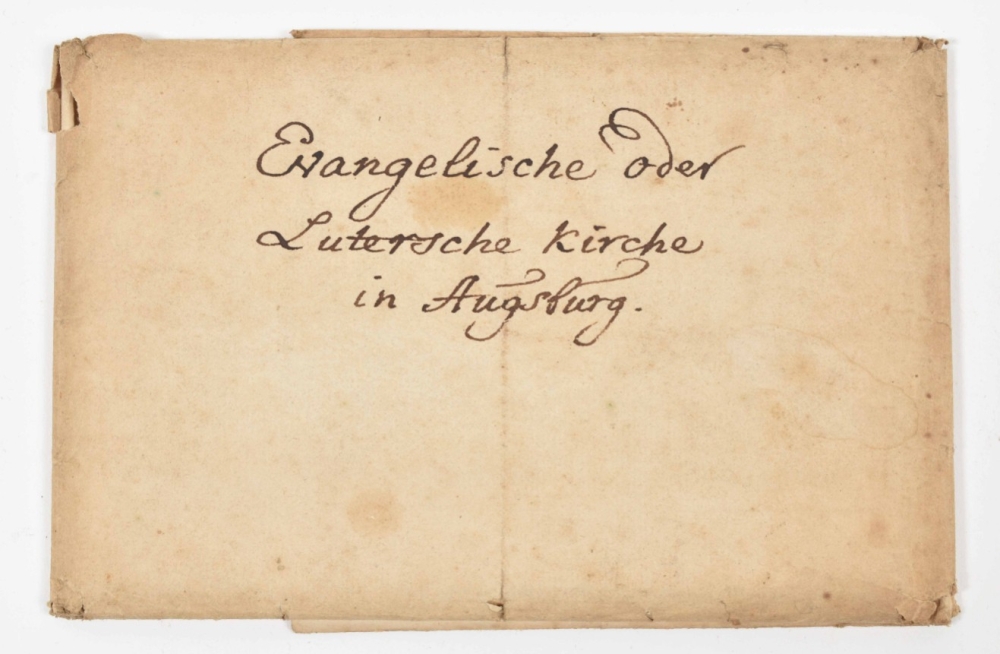 Evangelische oder
Lutersche Kirche
in Augsburg.